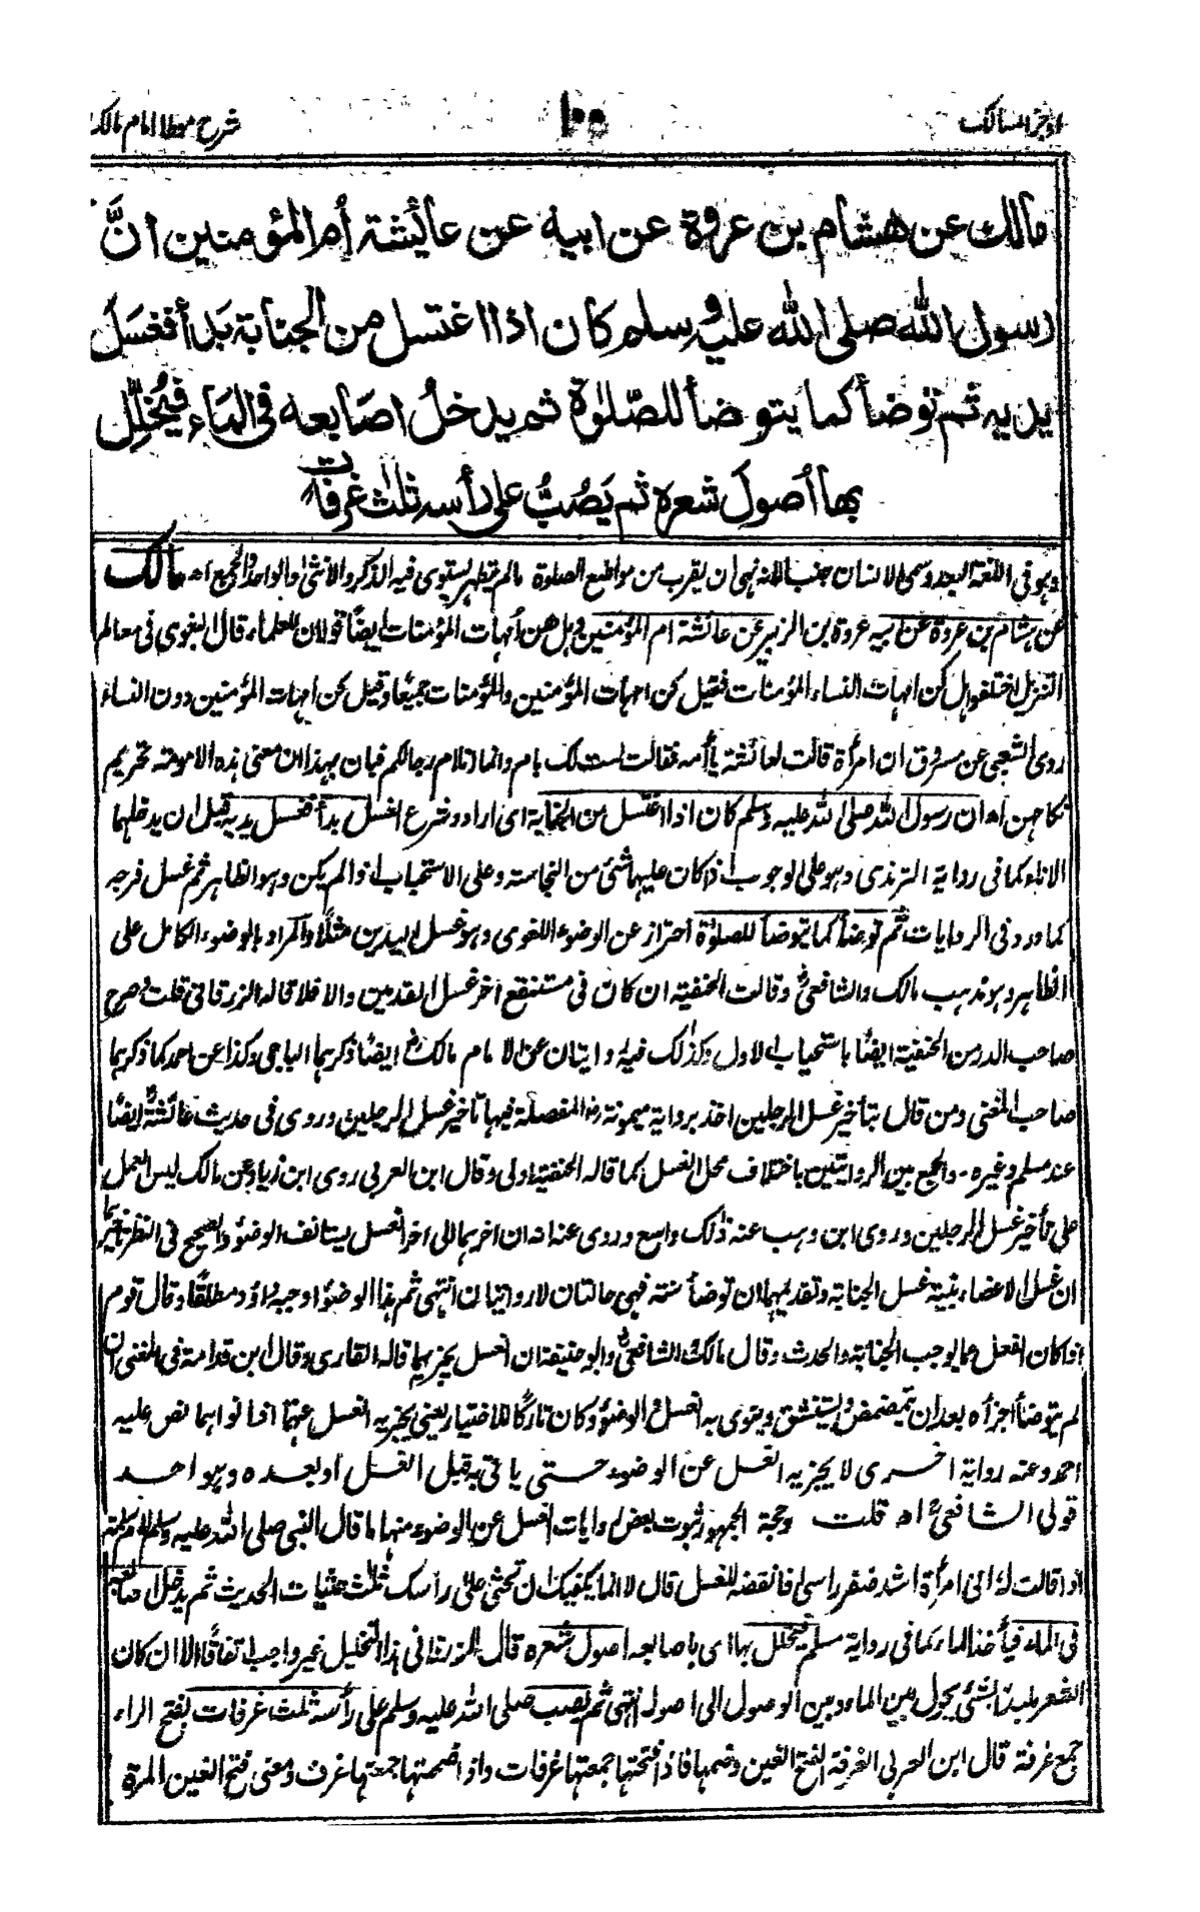 اوجز المسالک
۱۰۰
شرح موطا امام مالک
مالك عن هشام بن عروة عن ابيه عن عائشة أم المؤمنين انَّ
رسول الله صلى الله عليه وسلم كان اذا اغتسل من الجنابة بَدأ فغسَلَ
يديه ثم توضأ كما يتوضأ للصّلوٰة ثم يدخلُ اصَابعه فى الماء فيُخلِّل
بها اُصولَ شعره ثم يَصُبُّ على رأسه ثلٰث غرفات
وہو فی اللغۃ البعد وسمی الانسان جنبا لانہ نہی ان یقرب من مواضع الصلوۃ مالم یتطہر یستوی فیہ الذکر والانثی والواحد والجمع اھ مالک
عن ہشام بن عروۃ عن ابیہ عروۃ بن الزبیر عن عائشۃ ام المؤمنین وہل ہن اُمہات المؤمنات ایضًا قولان للعلماء قال البغوی فی معالم
التنزیل اختلفوا ہل کن امہات النساء المؤمنات فقیل کن امہات المؤمنین والمؤمنات جمیعًا وقیل کن امہات المؤمنین دون النساء
روی الشعبی عن مسروق ان امرأۃ قالت لعائشۃ یا أمہ فقالت لست لک بام وانما انا ام رجالکم فبان بہذا ان معنی ہذہ الامومۃ تحریم
نکاحہن اھ ان رسول اللہ صلی اللہ علیہ وسلم کان اذا اغتسل من الجنابۃ ای اراد وشرع الغسل بدأ فغسل یدیہ قبل ان یدخلہما
الاناء کما فی روایۃ الترمذی وہو علی الوجوب اذا کان علیہما شئ من النجاسۃ وعلی الاستحباب اذا لم یکن وہو الظاہر ثم غسل فرجہ
کما ورد فی الروایات ثم توضأ کما یتوضأ للصلوٰۃ احتراز عن الوضوء اللغوی وہو غسل الیدین مثلًا والمراد بالوضوء الکامل علی
الظاہر وہو مذہب مالک والشافعی وقالت الحنفیۃ ان کان فی مستنقع أخر غسل القدمین والا فلا قالہ الزرقانی قلت وصرح
صاحب الدر من الحنفیۃ ایضًا باستحباب الاول وکذٰلک فیہ روایتان عن الامام مالک ایضًا ذکرہما الباجی وکذا عن احمد کما ذکرہما
صاحب المغنی ومن قال بتأخیر غسل الرجلین اخذ بروایۃ میمونۃ المفصلۃ فیہا تأخیر غسل الرجلین وروی فی حدیث عائشۃ ایضًا
عند مسلم وغیرہ - والجمع بین الروایتین باختلاف محل الغسل کما قالہ الحنفیۃ اولی وقال ابن العربی روی ابن زیاد عن مالک لیس العمل
علی تأخیر غسل الرجلین وروی ابن وہب عنہ ذٰلک واسع وروی عنہ انہ ان اخرہما الی اخر الغسل یستانف الوضوء والصحیح فی النظر تاخیرہما
ان غسل الاعضاء بنیۃ غسل الجنابۃ وتقدیمہما ان توضأ سنۃ فہی حالتان لا روایتان انتہی ثم ہذا الوضوء اوجبہ داؤد مطلقًا وقال قوم
اذا کان الفعل مما یوجب الجنابۃ والحدث وقال مالک والشافعی وابو حنیفۃ ان الغسل یجزیہما قالہ القاری وقال ابن قدامۃ فی المغنی ان
لم یتوضأ اجزأہ بعد ان یتمضمض ویستنشق وینوی بہ الغسل والوضوء وکان تارکًا للاختیار یعنی یجزیہ الغسل عنہما اذا نواہما نص علیہ
احمد وعنہ روایۃ اخری لا یجزیہ الغسل عن الوضوء حتی یاتی بہ قبل الغسل او بعدہ وہو احد
قولی الشافعی اھ قلت وحجۃ الجمہور ثبوت بعض روایات الغسل عن الوضوء منہا ما قال النبی صلی اللہ علیہ وسلم لام سلمۃ
اذ قالت لہ انی امرأۃ اشد ضفر راسی افانقضہ للغسل قال لا انما یکفیک ان تحثی علی رأسک ثلٰث حثیات الحدیث ثم یدخل اصابعہ
فی الماء فیأخذ الماء کما فی روایۃ مسلم فیخلل بہا ای باصابعہ اصول شعرہ قال الزرقانی ہذا التخلیل غیر واجب اتفاقًا الا ان کان
الشعر ملبدًا بشئ یحول بین الماء وبین الوصول الی اصولہ انتہی ثم یصب صلی اللہ علیہ وسلم علی رأسہ ثلٰث غرفات بفتح الراء
جمع غرفۃ قال ابن العربی الغرفۃ بفتح الغین وضمہا فاذا فتحتہا جمعتہا غرفات واذا ضممتہا جمعتہا غرف ومعنی فتح الغین المرۃ